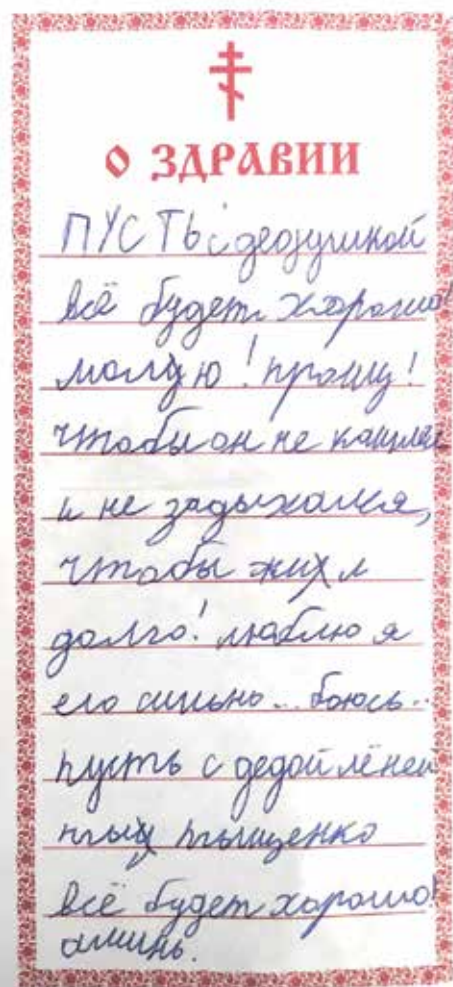 О ЗДРАВИИ
ПУСТЬ с дедушкой
всё будет хорошо!
молую! прошу!
чтобы он не кашлял
и не задыхался,
чтобы жил
долго! люблю я
его сильно... боюсь..
пусть с дедой лёней
всё будет хорошо!
аминь.